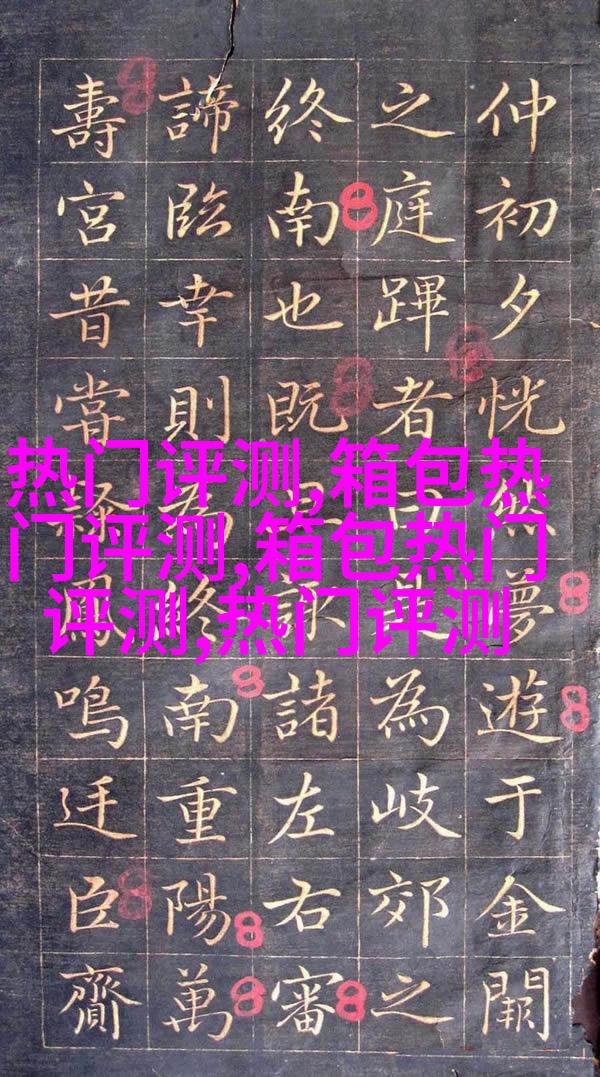 仲初夕恍然夢遊于金闕
之庭蹕者為岐郊之
終南也既諸左右審
諦臨幸則為終南重陽萬
壽宮昔甞鳳鳴廷臣齎
热门评测,箱包热
门评测,箱包热门
评测,热门评测